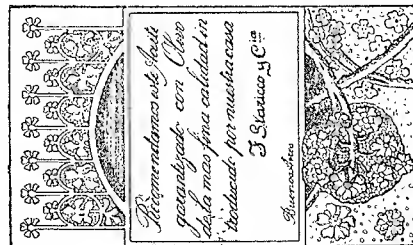 Recomendamos este Aceite
garantizado con Olivo
de la mas fina calidad in
troducido por nuestra casa
J. Starico y Cía
Buenos Aires